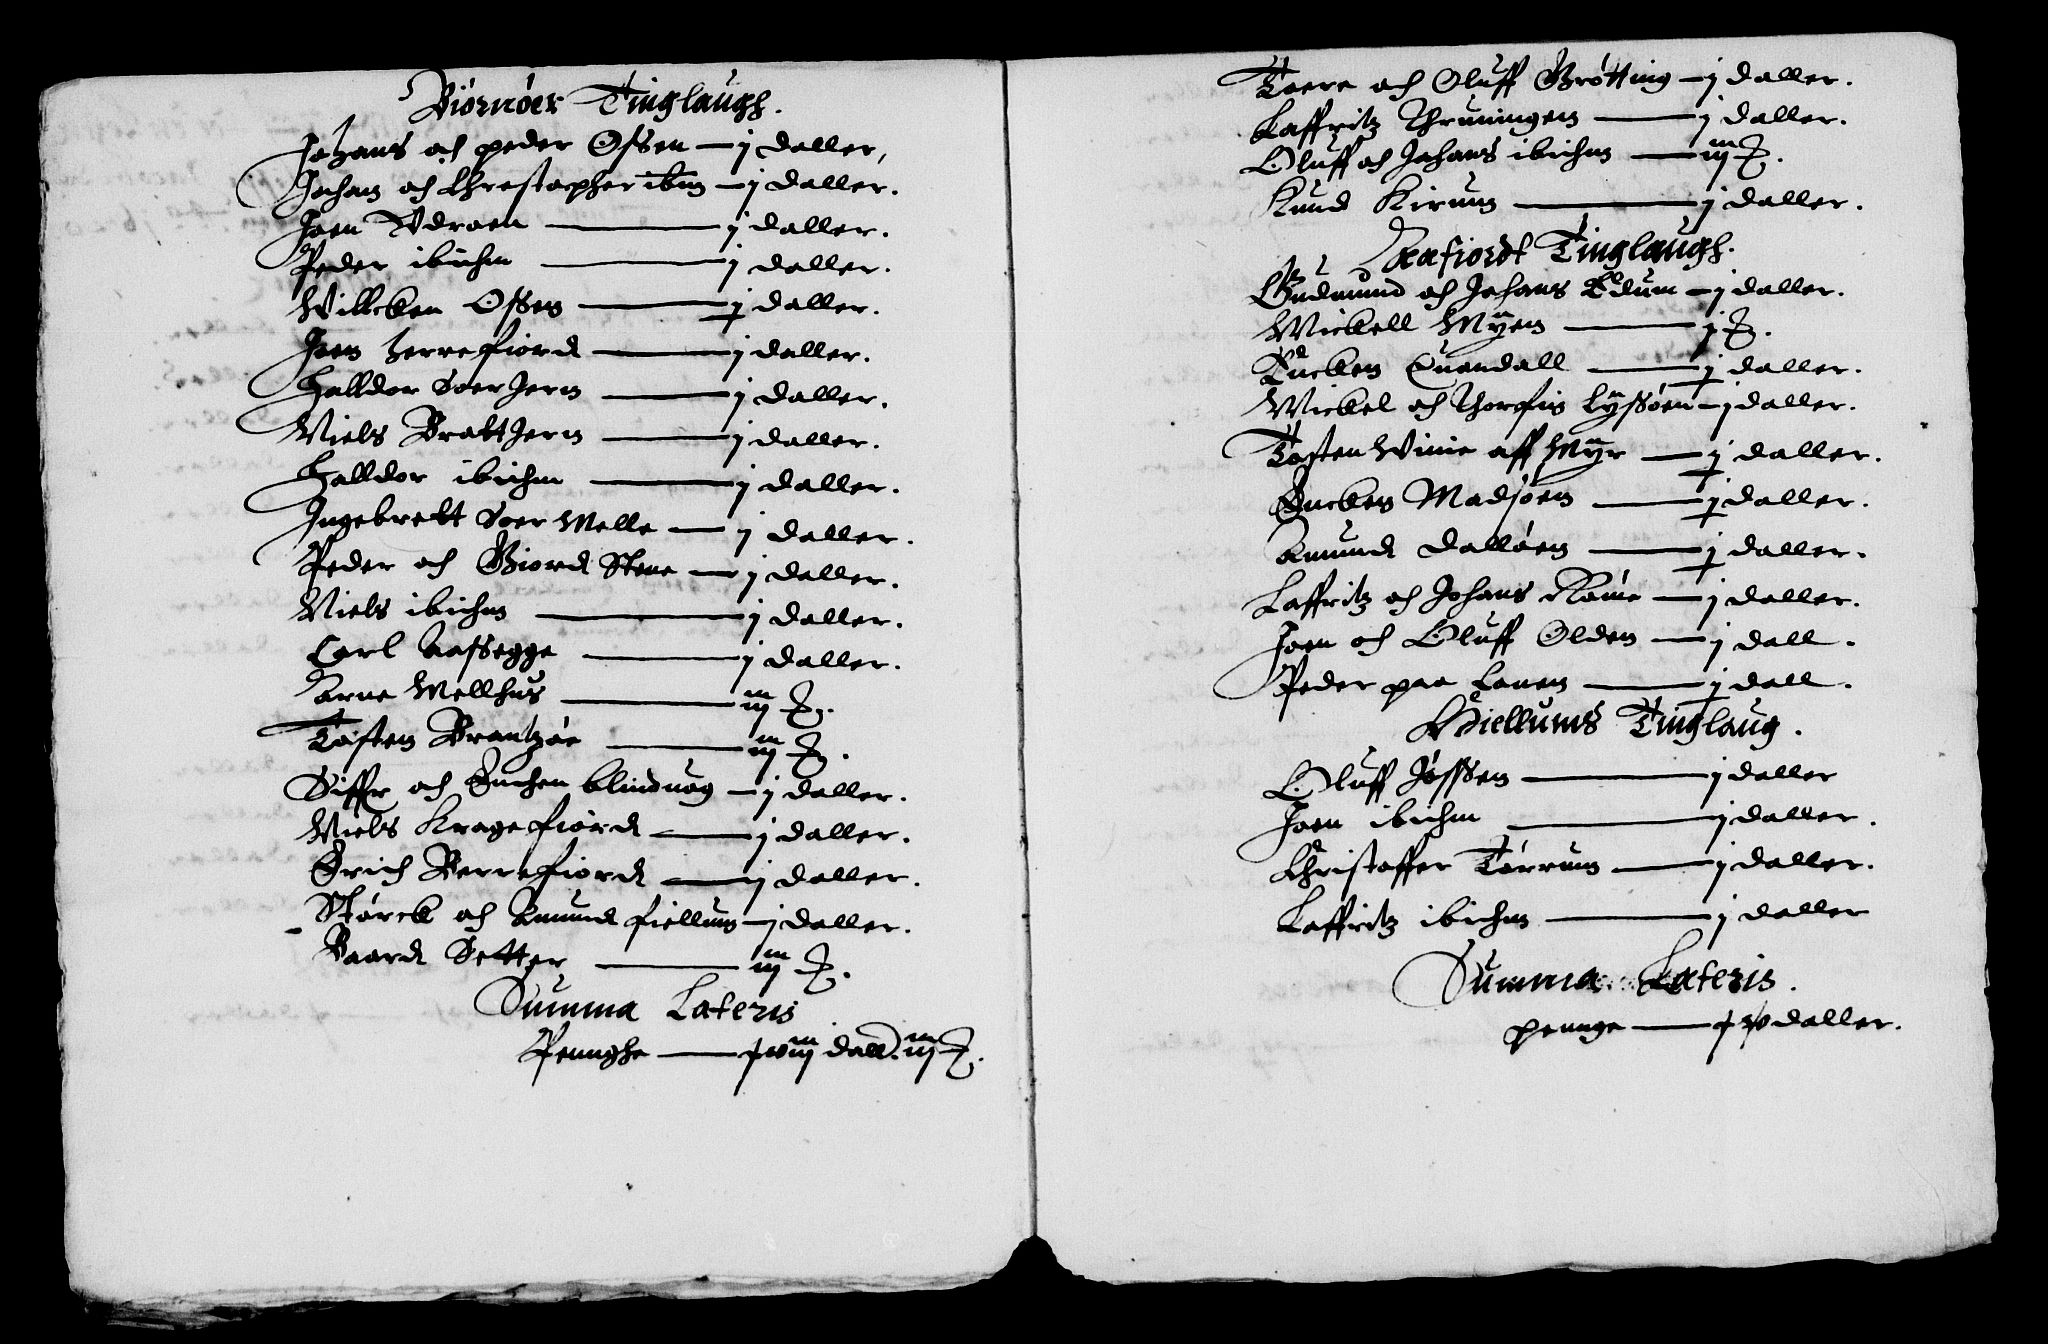 Biörnöer Tinglaugh.
Johans och peder Ossen — j daller,
Johan och Chrestopher ibm — j daller.
Joen Vdroen — j daller.
Peder ibidem — j daller.
Willcken Ossen — j daller.
Joen herrefiord — j daller.
Halldor SoerJern — j daller.
Niels BrattJern — j daller.
Halldor ibidem — j daller.
Ingebrett Soer Melle — j daller.
Peder och Biord Stene — j daller.
Niels ibidem — j daller.
Carl Aassegge — j daller.
Arne Mellhus — iij
Tosten Brantzöe — iij
Siffr och Suchen blindvog — j daller.
Niels Kragefiord — j daller.
Erich Berrefiord — j daller.
Störck och Amund fiellum — j daller.
Baard Setter — iij
Summa Lateris
Pennghe — dall. iij
Toere och Oluff Brötting — j daller.
Laffritz Thruningen — j daller.
Oluff och Johans ibidem — iij
Knud Kirung — j daller.
Aafiordt Tinglaugh.
Gudmund och Johans Edum — j daller.
Mickell Myen — j
Lucken Quandall — j daller.
Mickel och Thorfin Lyssöen — j daller.
Tosten Minie aff Myr — j daller.
Sucken Madsöen — j daller.
Amund Dallöen — j daller.
Laffritz och Johans Röme — j daller.
Joen och Oluff Olden — j dall.
Peder paa Lauen — j dall.
Miellums Tinglaug.
Oluff Jössen — j daller
Joen ibidem — j daller.
Christoffer Törrum — j daller.
Laffritz ibidem — j daller
Summa Lateris.
pennge — daller.